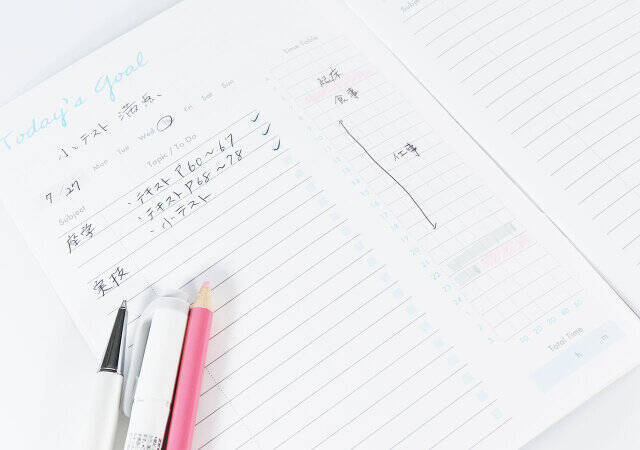 Today's Goal
小テスト 満点
7/27 Mon Tue Wed Fri Sat Sun
Subject Topic / To Do
座学 ・テキスト P60〜67 ✓
・テキスト P68〜78 ✓
・小テスト ✓
実技
Time Table
起床
食事
仕事
10 20 30 40 50
Total Time
h m
Subject